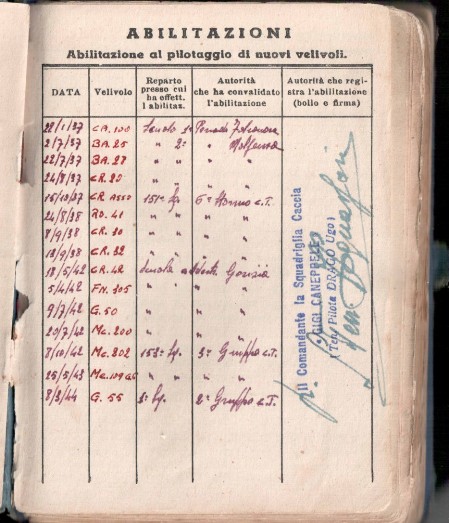 ABILITAZIONI
Abilitazione al pilotaggio di nuovi velivoli.
DATA Velivolo Reparto presso cui ha effett. l'abilitaz. Autorità che ha convalidato l'abilitazione Autorità che registra l'abilitazione (bollo e firma)
22/1/37 CR. 100 Scuola 1°
2/7/37 BA. 25 " 2° "
22/7/37 BA. 27 " " "
24/8/37 CR. 20 " "
15/10/37 CR ASSO 151° " C.T.
24/8/38 RO. 41 " " "
8/9/38 CR. 30 " " "
13/9/38 CR. 32 " " "
18/5/42 CR. 42 Scuola Gorizia
5/4/42 FN. 305 " " "
9/7/42 G. 50 " " "
20/7/42 Mc. 200 " " "
8/10/42 Mc. 202 153° 3° Gruppo C.T.
25/5/43 " " "
8/3/44 G. 55 2° Gruppo C.T.
Il Comandante la Squadriglia Caccia
"GIGI CANEPPELE"
(Ten. Pilota DRAGO Ugo)